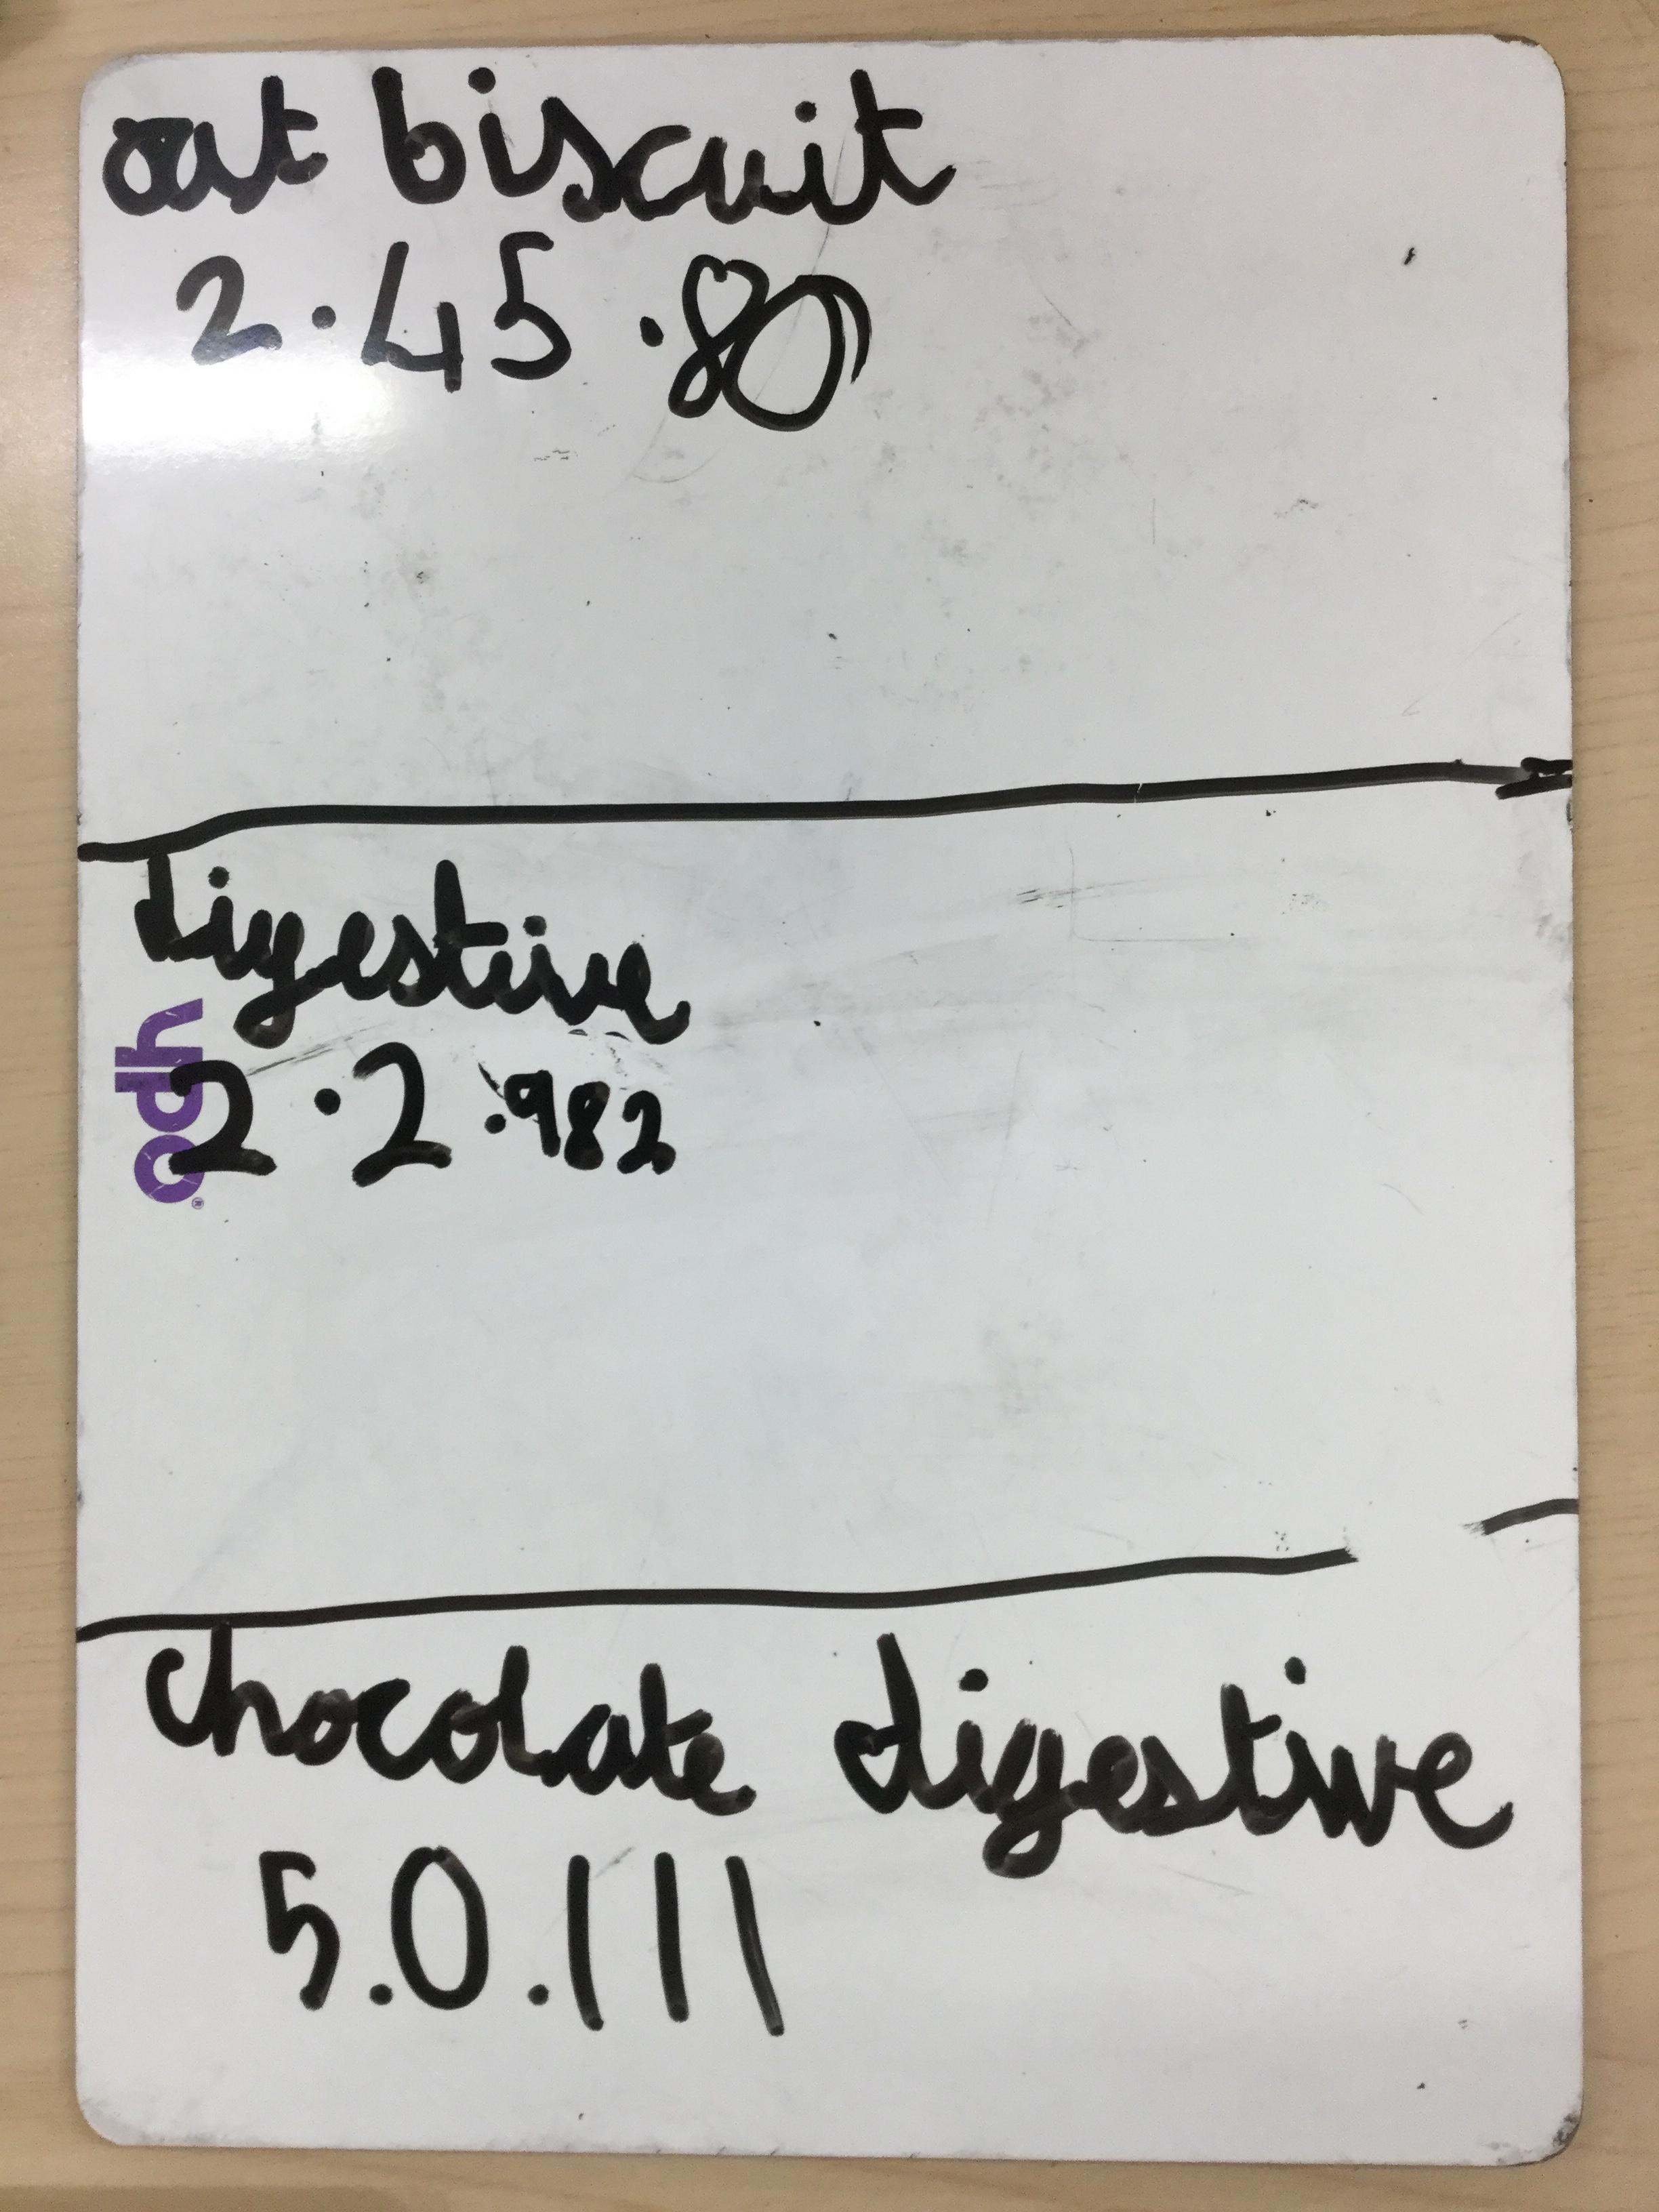 oat biscuit
2.45.80
digestive
ypo®
2.2.982
chocolate digestive
5.0.111